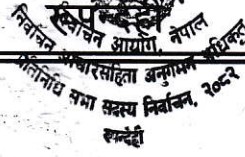 रुपन्देही
निर्वाचन आयोग, नेपाल
निर्वाचन आचारसंहिता अनुगमन अधिकृत
प्रतिनिधि सभा सदस्य निर्वाचन, २०८२
रुपन्देही